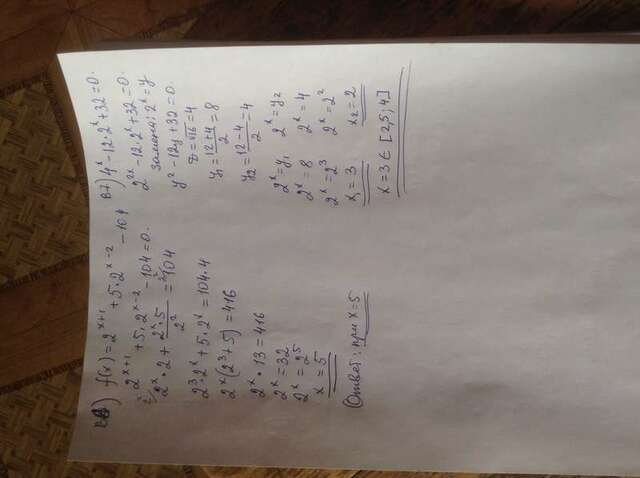 f(x) = 2^{x+1} + 5·2^{x-2} - 104
2^{x+1} + 5·2^{x-2} - 104 = 0.
2^x · 2 + \frac{2^x·5}{2^2} = 104
2^3·2^x + 5·2^x = 104·4
2^x(2^3+5) = 416
2^x · 13 = 416
2^x = 32
2^x = 2^5
x = 5
Ответ: при x=5
В7) 4^x - 12·2^x + 32 = 0.
2^{2x} - 12·2^x + 32 = 0.
Замена: 2^x = y
y^2 - 12y + 32 = 0.
D = √16 = 4
y_1 = \frac{12+4}{2} = 8
y_2 = \frac{12-4}{2} = 4
2^x = y_1 2^x = y_2
2^x = 8 2^x = 4
2^x = 2^3 2^x = 2^2
x_1 = 3 x_2 = 2
x = 3 ∈ [2,5; 4]